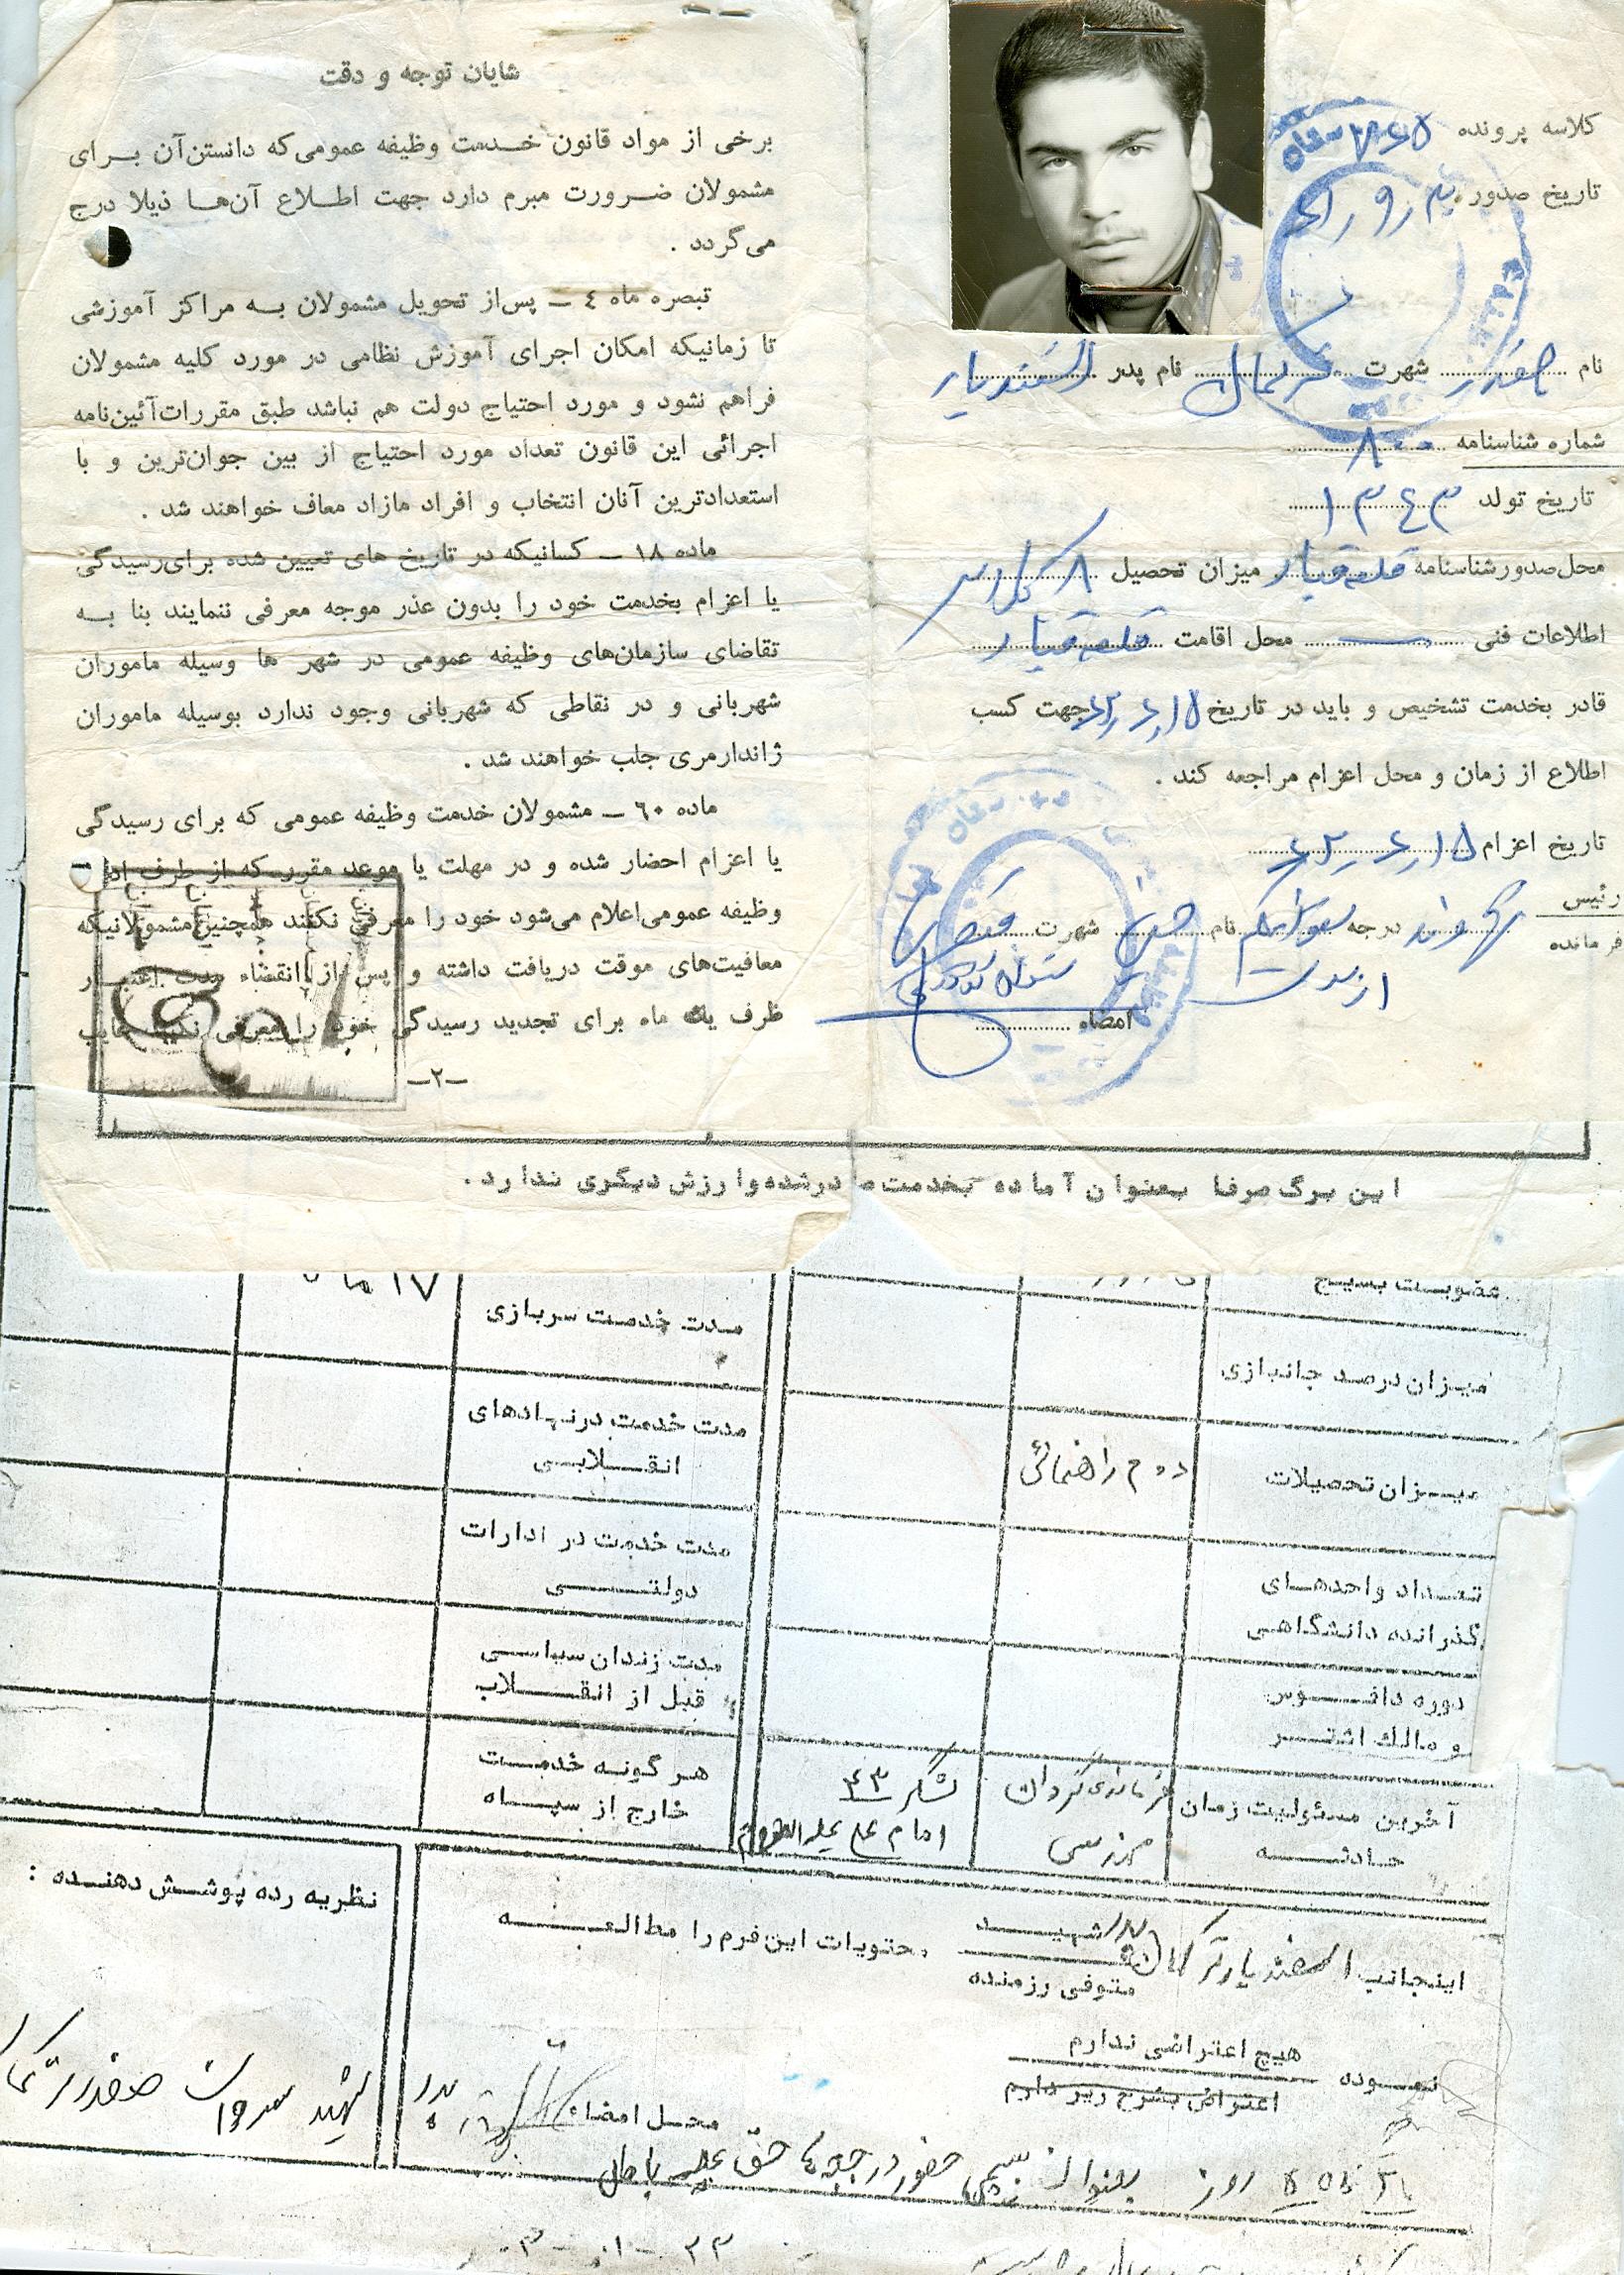 کلاسه پرونده
تاریخ صدور
نام صفدر شهرت ترکمان نام پدر اسفندیار
شماره شناسنامه ۸۰۰
تاریخ تولد ۱۳۴۳
محل صدور شناسنامه قلعه قباد میزان تحصیل ۸ کلاس
اطلاعات فنی — محل اقامت قلعه قباد
قادر بخدمت تشخیص و باید در تاریخ جهت کسب
اطلاع از زمان و محل اعزام مراجعه کند .
تاریخ اعزام
رئیس
فرمانده نهاوند درجه نام حسن شهرت
امضاء
شایان توجه و دقت
برخی از مواد قانون خـدمت وظیفه عمومی که دانستن آن بـرای
مشمولان ضـرورت مبرم دارد جهت اطـلاع آن‌هـا ذیلا درج
می‌گردد .
تبصره ماه ٤ ـ پس‌از تحویل مشمولان بـه مراکز آموزشی
تا زمانیکه امکان اجرای آموزش نظامی در مورد کلیه مشمولان
فراهم نشود و مورد احتیاج دولت هم نباشد طبق مقررات‌آئین‌نامه
اجرائی این قانون تعداد مورد احتیاج از بین جوان‌ترین و با
استعدادترین آنان انتخاب و افراد مازاد معاف خواهند شد .
ماده ۱۸ ـ کسانیکه در تاریخ های تعیین شده برای‌رسیدگی
یا اعزام بخدمت خود را بدون عذر موجه معرفی ننمایند بنا بـه
تقاضای سازمان‌های وظیفه عمومی در شهر ها وسیله ماموران
شهربانی و در نقاطی که شهربانی وجود ندارد بوسیله ماموران
ژاندارمری جلب خواهند شد .
ماده ٦۰ ـ مشمولان خدمت وظیفه عمومی که برای رسیدگی
یا اعزام احضار شده و در مهلت یا موعد مقرر که از طرف
وظیفه عمومی‌اعلام می‌شود خود را معرفی نکنند همچنین مشمولانیکه
معافیت‌های موقت دریافت داشته و پس از انقضاء مدت اعتبـار
ظرف یك ماه برای تجدید رسیدگی خود را معرفی نکنند غایب
ـ۲ـ
این برگ صرفا بعنوان آماده بخدمت صادرشده‌و ارزش دیگری ندارد .
عضویت بسیج
میزان درصد جانبازی
میزان تحصیلات دوم راهنمائی
تعداد واحدهای
گذرانده دانشگاهی
دوره دافوس
و مالك اشتر
آخرین مسئولیت زمان
حادثه
فرمانده گردان
مهندسی
لشگر ۴۳
امام علی علیه السلام
مدت خدمت سربازی ۱۷ ماه
مدت خدمت درنهادهای
انقلابی
مدت خدمت در ادارات
دولتی
مدت زندان سیاسی
قبل از انقلاب
هر گونه خدمت
خارج از سپاه
اینجانب اسفندیار ترکمان پدر شهید محتویات این فرم را مطالعه
متوفی رزمنده
نموده هیچ اعتراضی ندارم
اعتراض بشرح زیر دارم
محل امضاء پدر
نظریه رده پوشش دهنده :
شهید صفدر ترکمان
روز بعنوان حضور در جبهه حق علیه باطل